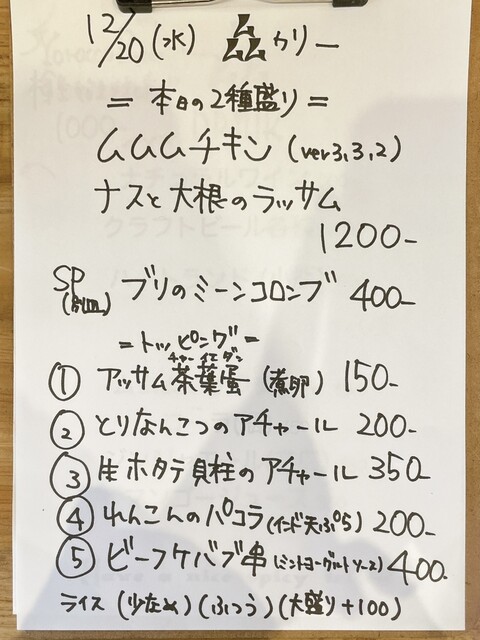 12/20(水) ムムムカリー
=本日の2種盛り=
ムムムチキン (ver3,3,2)
ナスと大根のラッサム
1200-
SP(別皿) ブリのミーンコロンブ 400-
=トッピング=
チャーイエダン
① アッサム茶葉蛋(煮卵) 150-
② とりなんこつのアチャール 200-
③ 生ホタテ貝柱のアチャール 350
④ れんこんのパコラ(インド天ぷら) 200-
⑤ ビーフケバブ串(ミントヨーグルトソース) 400-
ライス (少なめ)(ふつう)(大盛り+100)